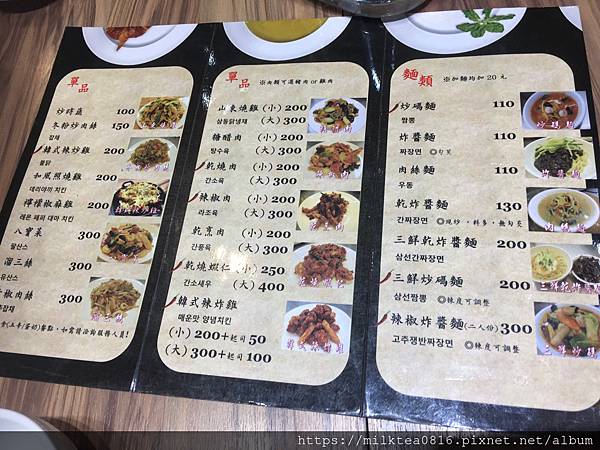 單品
炒時蔬 100
冬粉炒肉絲 150
잡채
韓式辣炒雞 200
불닭
和風照燒雞 200
데리야끼 치킨
檸檬椒麻雞 200
레몬 페퍼 대마 치킨
八寶菜 300
팔산스
溜三絲 300
유산스
椒肉絲 300
單品
※肉類可選豬肉 or 雞肉
山東燒雞 (小) 200
삼동닭냉채 (大) 300
糖醋肉 (小) 200
탕수육 (大) 300
乾燒肉 (小) 200
간소육 (大) 300
辣椒肉 (小) 200
라조육 (大) 300
乾烹肉 (小) 200
간풍육 (大) 300
乾燒蝦仁 (小) 250
간소새우 (大) 400
韓式辣炸雞
매운맛 양념치킨
(小) 200+起司 50
(大) 300+起司 100
麵類
※加麵均加 20 元
炒碼麵 110
짬뽕
炸醬麵 110
짜장면
肉絲麵 110
우동
乾炸醬麵 130
간짜장면 ◎現炒,料多,無勾芡
三鮮乾炸醬麵 200
삼선간짜장면
三鮮炒碼麵 200
삼선짬뽕 ◎辣度可調整
辣椒炸醬麵(二人份) 300
고추쟁반짜장면 ◎辣度可調整
https://milktea0816.pixnet.net/album